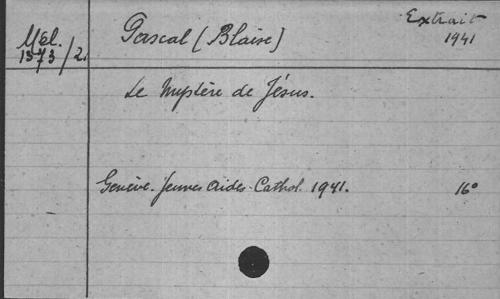 Extrait
1941
Mél.
1373/2.
Pascal (Blaise)
Le Mystère de Jésus.
Genève. Jeunes Aides-Cathol. 1941. 16°